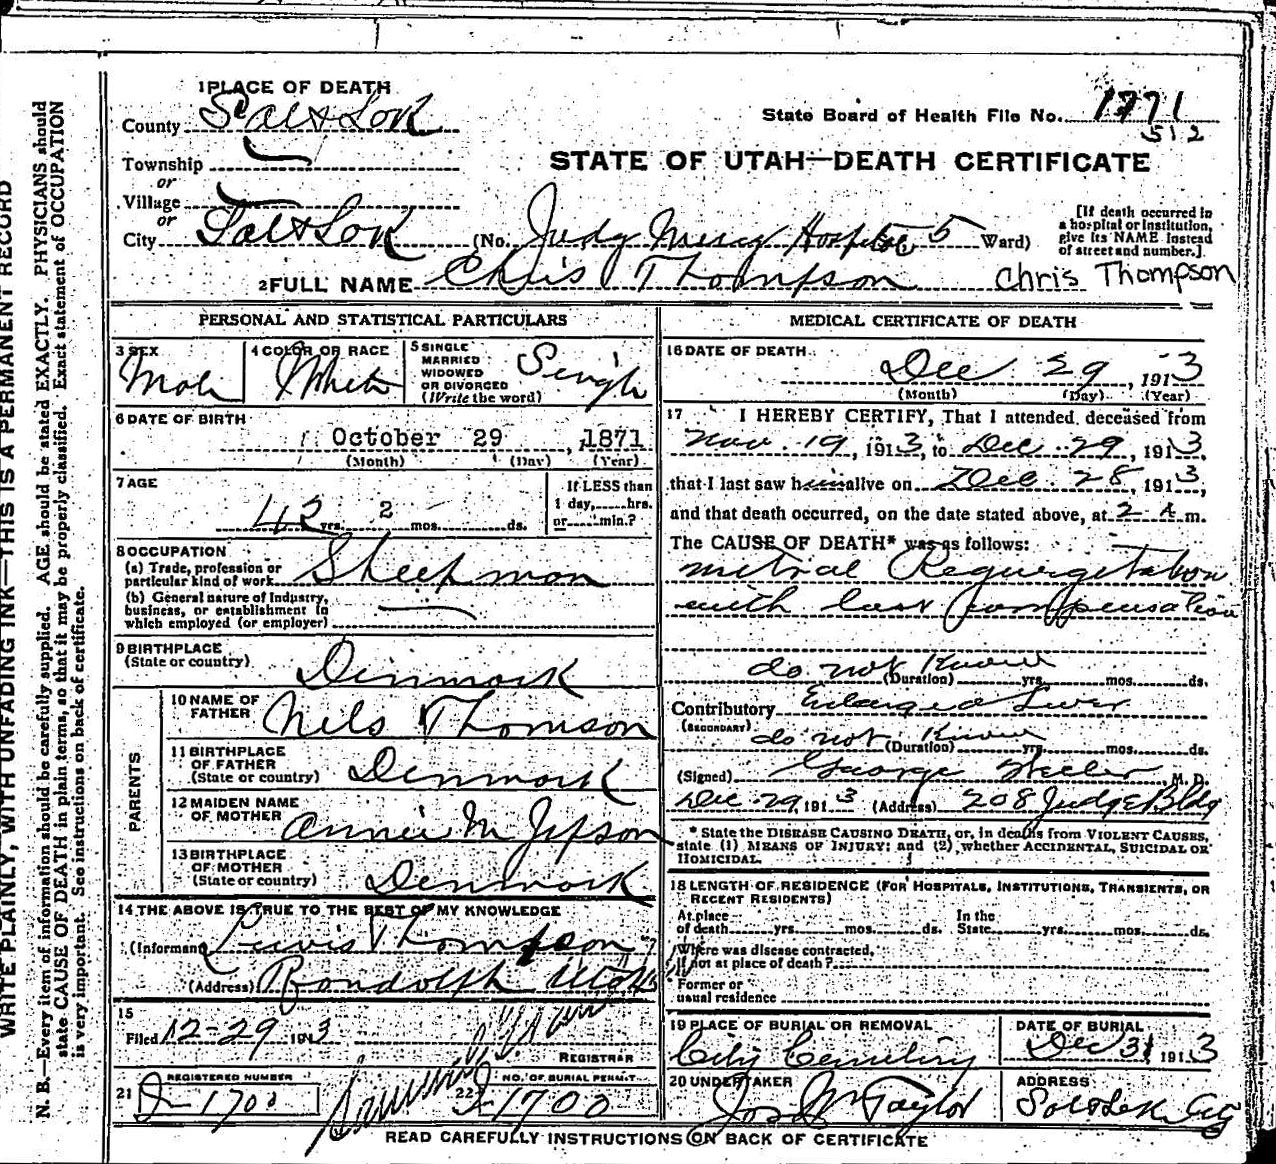 1 PLACE OF DEATH
County Salt Lak
State Board of Health File No. 1771
512
Township
or
Village
or
City Salt Lak (No. Judg Mercy Hospital 5 Ward)
STATE OF UTAH—DEATH CERTIFICATE
[If death occurred in a hospital or institution, give its NAME instead of street and number.]
2 FULL NAME Chris Thompson Chris Thompson
PERSONAL AND STATISTICAL PARTICULARS
3 SEX Male
4 COLOR OR RACE White
5 SINGLE MARRIED WIDOWED OR DIVORCED (Write the word) Single
6 DATE OF BIRTH
October 29, 1871
(Month) (Day) (Year)
7 AGE
42 yrs. 2 mos. ds.
If LESS than 1 day, hrs. or min.?
8 OCCUPATION
(a) Trade, profession or particular kind of work Sheepman
(b) General nature of industry, business, or establishment in which employed (or employer)
9 BIRTHPLACE
(State or country) Denmark
PARENTS
10 NAME OF FATHER Nels Thomson
11 BIRTHPLACE OF FATHER (State or country) Denmark
12 MAIDEN NAME OF MOTHER Annie M Jepson
13 BIRTHPLACE OF MOTHER (State or country) Denmark
14 THE ABOVE IS TRUE TO THE BEST OF MY KNOWLEDGE
(Informant) Lewis Thompson
(Address) Randolph Utah
15
Filed 12-29 1913
REGISTRAR
REGISTERED NUMBER
21 D-1700
NO. OF BURIAL PERMIT
22 D-1700
MEDICAL CERTIFICATE OF DEATH
16 DATE OF DEATH
Dec 29, 1913
(Month) (Day) (Year)
17 I HEREBY CERTIFY, That I attended deceased from
Nov 19, 1913, to Dec 29, 1913,
that I last saw him alive on Dec 28, 1913,
and that death occurred, on the date stated above, at 2 A m.
The CAUSE OF DEATH* was as follows:
Mitral Regurgetation
with lost compensation
do not know
(Duration) yrs. mos. ds.
Contributory Enlarged Liver
(SECONDARY)
do not know
(Duration) yrs. mos. ds.
(Signed) George M.D.
Dec 29 1913 (Address) 208 Judge Bldg
* State the DISEASE CAUSING DEATH, or, in deaths from VIOLENT CAUSES, state (1) MEANS OF INJURY; and (2) whether ACCIDENTAL, SUICIDAL OR HOMICIDAL.
18 LENGTH OF RESIDENCE (FOR HOSPITALS, INSTITUTIONS, TRANSIENTS, OR RECENT RESIDENTS)
At place of death yrs. mos. ds. In the State yrs. mos. ds.
Where was disease contracted, if not at place of death?
Former or usual residence
19 PLACE OF BURIAL OR REMOVAL
City Cemetery
DATE OF BURIAL
Dec 31 1913
20 UNDERTAKER
Jos M Taylor
ADDRESS
Salt Lake City
READ CAREFULLY INSTRUCTIONS ON BACK OF CERTIFICATE
WRITE PLAINLY, WITH UNFADING INK—THIS IS A PERMANENT RECORD
N. B.—Every item of information should be carefully supplied. AGE should be stated EXACTLY. PHYSICIANS should
state CAUSE OF DEATH in plain terms, so that it may be properly classified. Exact statement of OCCUPATION
is very important. See instructions on back of certificate.